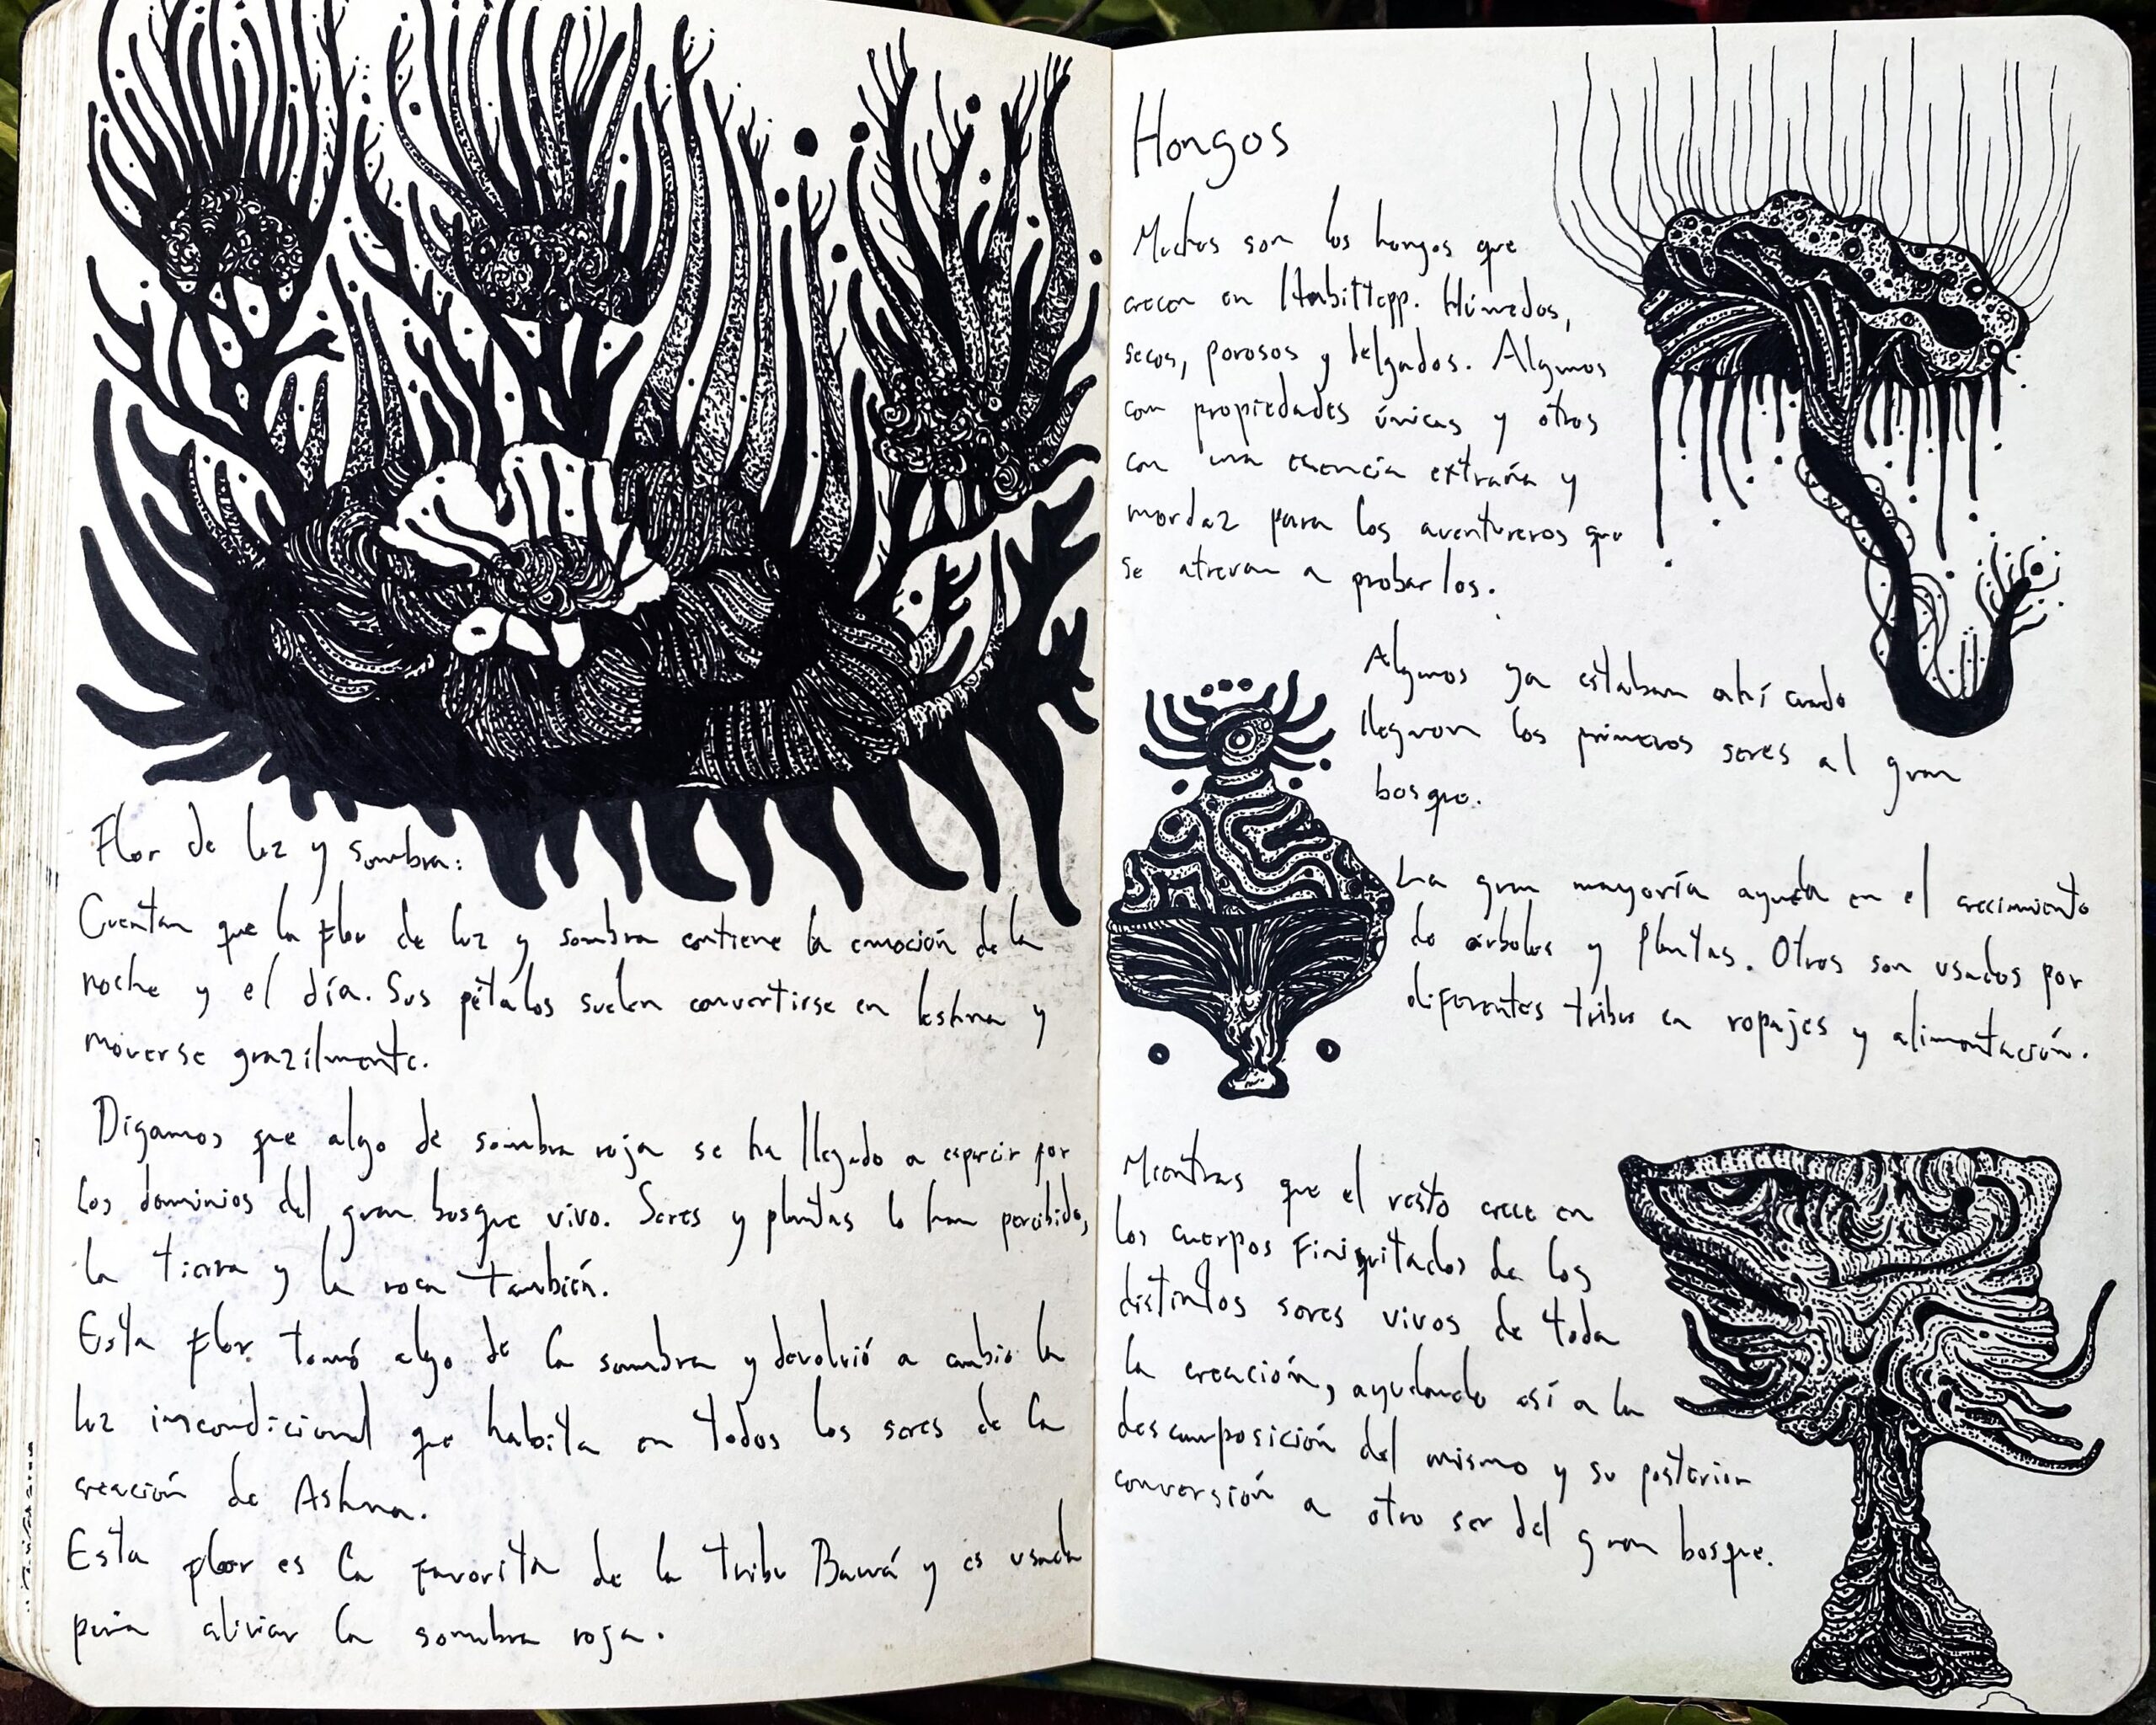 Flor de luz y sombra:
Cuentan que la flor de luz y sombra contiene la emoción de la
noche y el día. Sus pétalos suelen convertirse en leshna y
moverse grazilmente.
Digamos que algo de sombra roja se ha llegado a esparcir por
los dominios del gran bosque vivo. Seres y plantas lo han percibido,
la tierra y la roca también.
Esta flor tomó algo de la sombra y devolvió a cambio la
luz incondicional que habita en todos los seres de la
creación de Ashna.
Esta floor es la favorita de la tribu Bawá y es usada
para aliviar la sombra roja.
Hongos
Muchos son los hongos que
crecen en Habittepp. Húmedos,
secos, porosos y delgados. Algunos
con propiedades únicas y otros
con una esencia extraña y
mordaz para los aventureros que
se atrevan a probarlos.
Algunos ya estaban ahí cuado
llegaron los primeros seres al gran
bosque.
La gran mayoría ayuda en el crecimiento
de árboles y plantas. Otros son usados por
diferentes tribus en ropajes y alimentación.
Mientras que el resto crece en
los cuerpos finiquitados de los
distintos seres vivos de toda
la creación, ayudando así a la
descomposición del mismo y su posterior
conversión a otro ser del gran bosque.